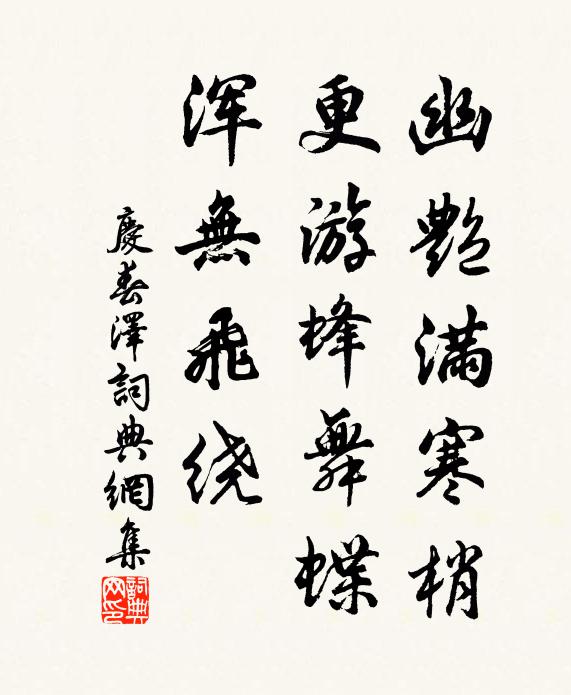 幽艷滿寒梢
更游蜂舞蝶
浑無飛绕
慶春澤詞典網集
詞典網印